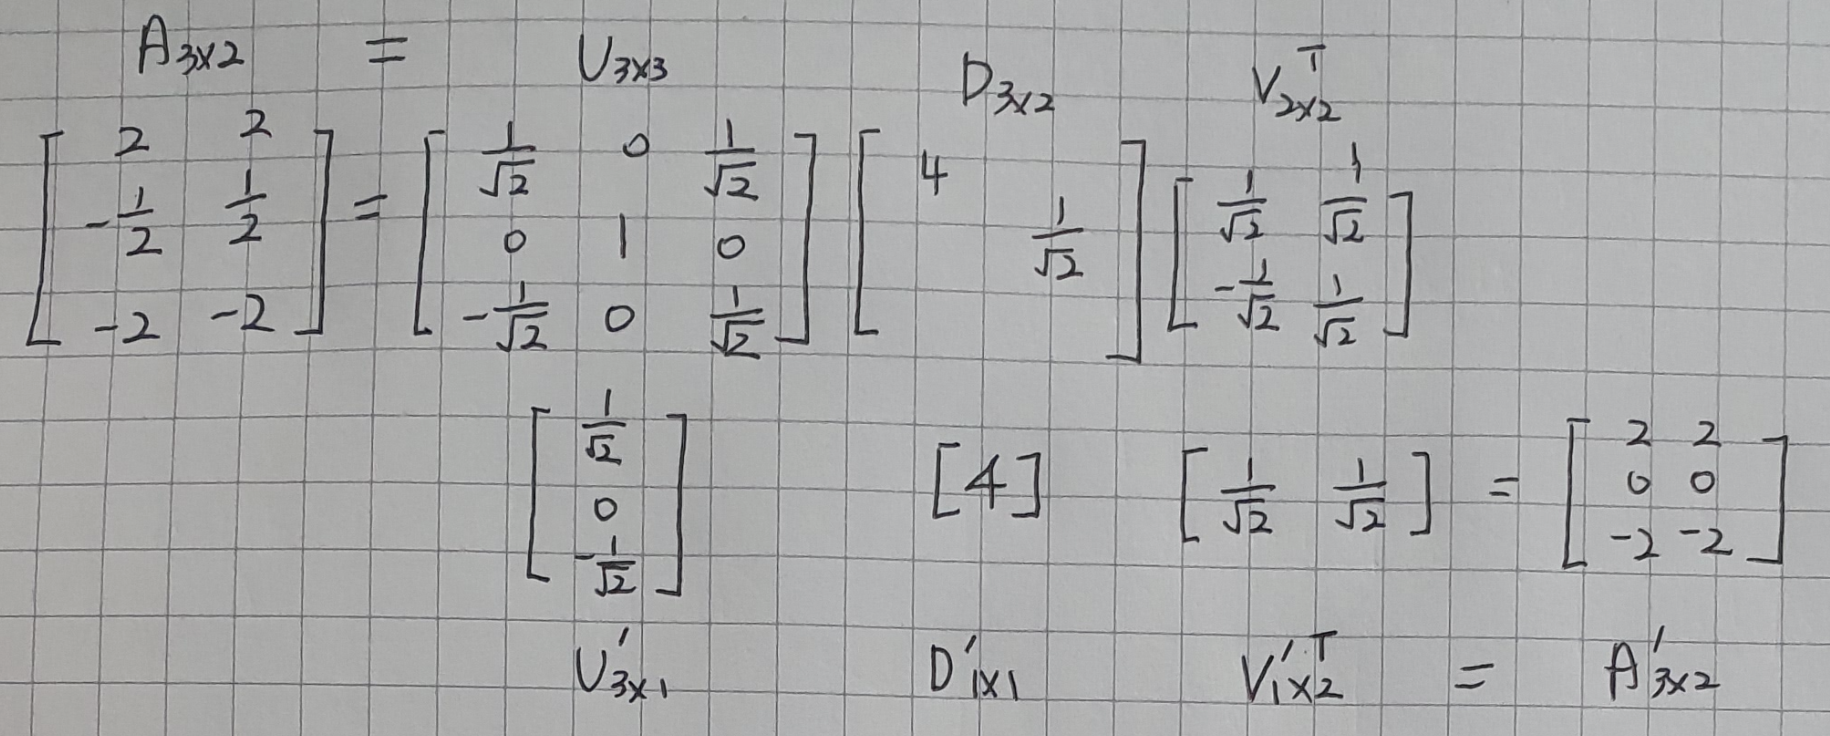 A₃ₓ₂ = U₃ₓ₃ D₃ₓ₂ Vᵀ₂ₓ₂
[2 2; -1/2 1/2; -2 -2] = [1/√2 0 1/√2; 0 1 0; -1/√2 0 1/√2] [4 ; 1/√2] [1/√2 1/√2; -1/√2 1/√2]
[1/√2; 0; -1/√2] [4] [1/√2 1/√2] = [2 2; 0 0; -2 -2]
U'₃ₓ₁ D'₁ₓ₁ V'ᵀ₁ₓ₂ = A'₃ₓ₂